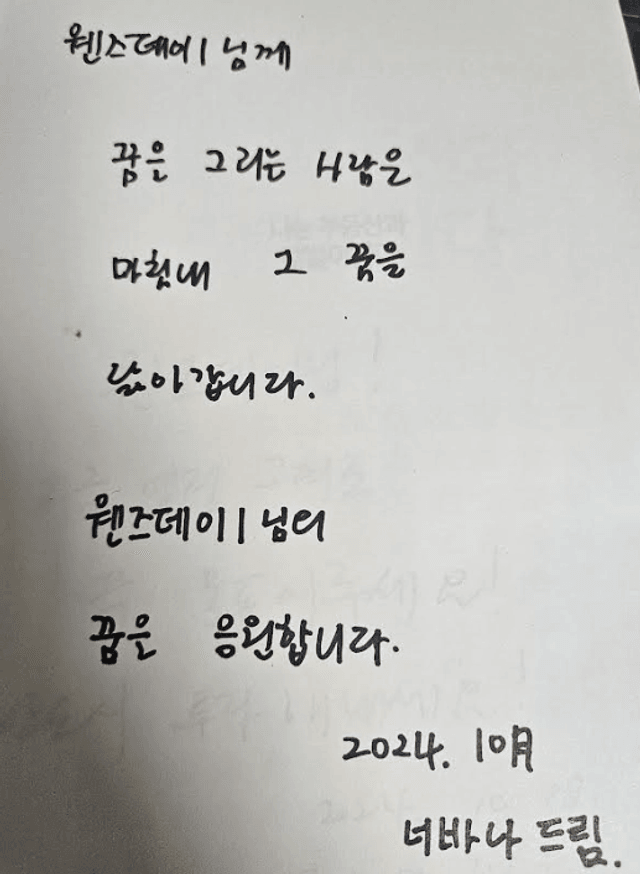 웬즈데이 님께
꿈을 그리는 사람은
마침내 그 꿈을
닮아갑니다.
웬즈데이 님의
꿈을 응원합니다.
2024. 10月
너바나 드림.